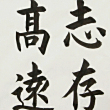 志存
高遠